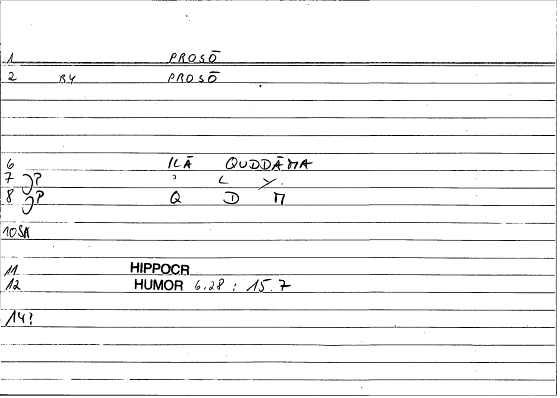 1 PROSŌ
2 RY PROSŌ
6 ILĀ QUDDĀMA
7 JP ʾ L Y.
8 JP Q D M
10 SA
11 HIPPOCR
12 HUMOR 6.28 : 15.7
14?